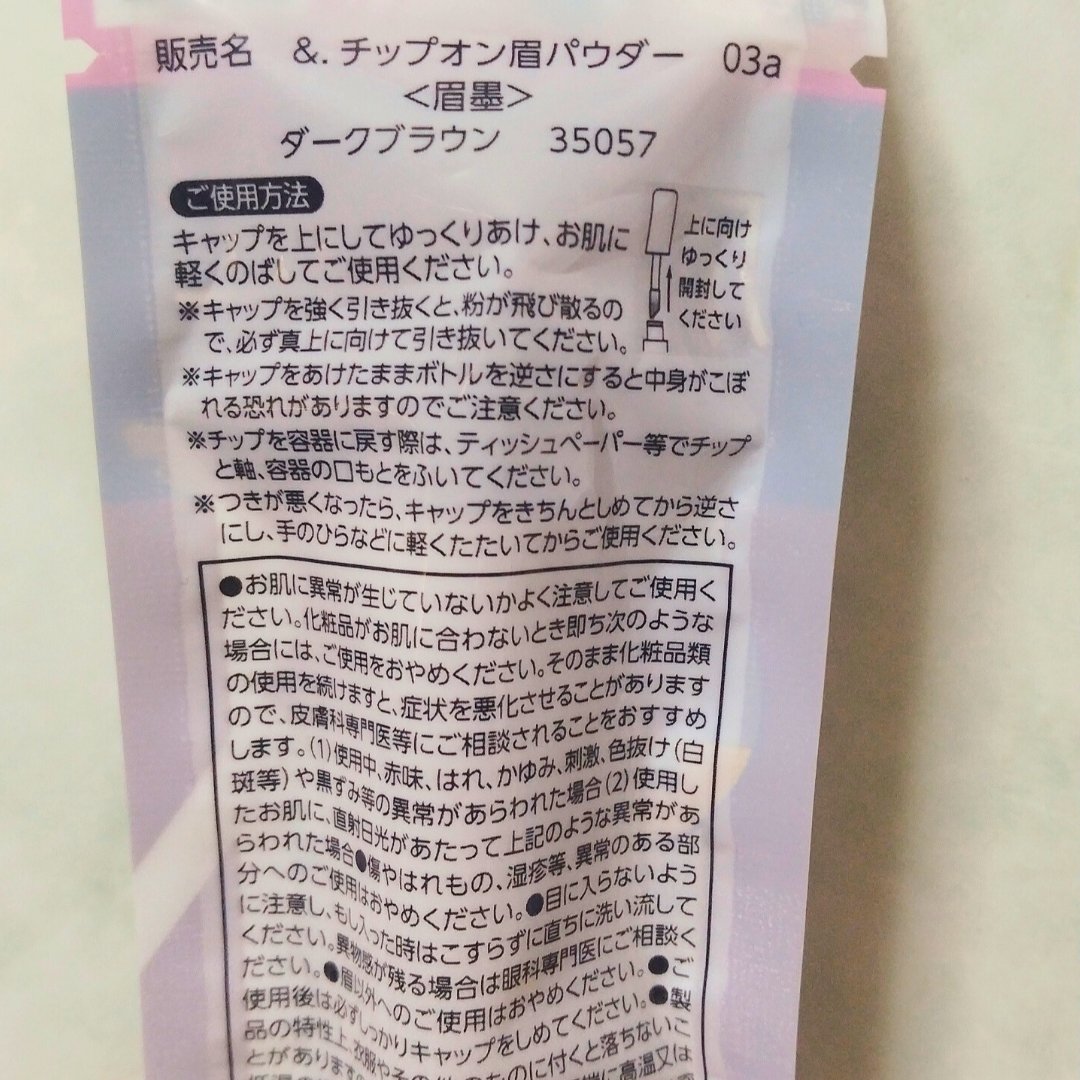 販売名 &.チップオン眉パウダー 03a
<眉墨>
ダークブラウン 35057
ご使用方法
キャップを上にしてゆっくりあけ、お肌に
軽くのばしてご使用ください。
※キャップを強く引き抜くと、粉が飛び散るの
で、必ず真上に向けて引き抜いてください。
上に向け
ゆっくり
開封して
ください
※キャップをあけたままボトルを逆さにすると中身がこぼ
れる恐れがありますのでご注意ください。
※チップを容器に戻す際は、ティッシュペーパー等でチップ
と軸、容器の口もとをふいてください。
※つきが悪くなったら、キャップをきちんとしめてから逆さ
にし、手のひらなどに軽くたたいてからご使用ください。
●お肌に異常が生じていないかよく注意してご使用く
ださい。化粧品がお肌に合わないとき即ち次のような
場合には、ご使用をおやめください。そのまま化粧品類
の使用を続けますと、症状を悪化させることがあります
ので、皮膚科専門医等にご相談されることをおすすめ
します。(1)使用中、赤味、はれ、かゆみ、刺激、色抜け(白
斑等)や黒ずみ等の異常があらわれた場合(2)使用し
たお肌に、直射日光があたって上記のような異常があ
らわれた場合●傷やはれもの、湿疹等、異常のある部
分へのご使用はおやめください。●目に入らないよう
に注意し、もし入った時はこすらずに直ちに洗い流して
ください。異物感が残る場合は眼科専門医にご相談く
ださい。●眉以外へのご使用はおやめください。●ご
使用後は必ずしっかりキャップをしめてください。●製
品の特性上、衣服やその他のものに付くと落ちないこ
とがあります
高温又は